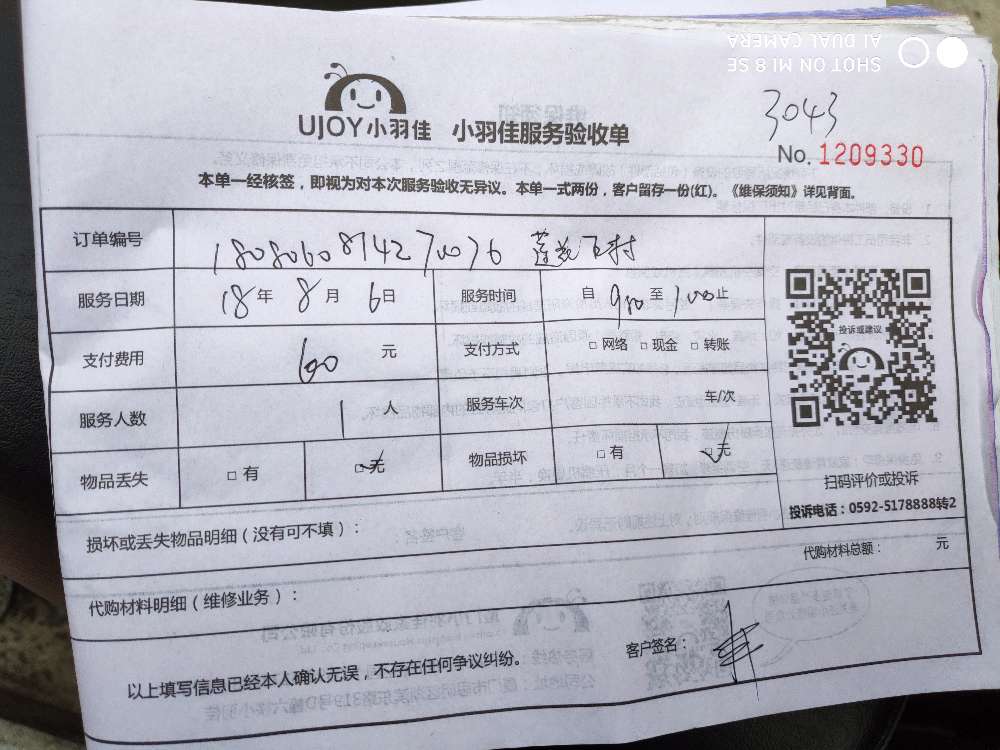 SHOT ON MI 8 SE
AI DUAL CAMERA
UJOY小羽佳 小羽佳服务验收单
3043
No. 1209330
本单一经核签，即视为对本次服务验收无异议。本单一式两份，客户留存一份(红)。《维保须知》详见背面。
订单编号
服务日期 18年 8月 6日 服务时间 自 至 止
支付费用 60 元 支付方式 □网络 □现金 □转账
服务人数 1 人 服务车次 车/次
物品丢失 □有 □无 物品损坏 □有 □无
投诉或建议
扫码评价或投诉
投诉电话：0592-5178888转2
损坏或丢失物品明细（没有可不填）：
代购材料总额： 元
代购材料明细（维修业务）：
以上填写信息已经本人确认无误，不存在任何争议纠纷。
客户签名：